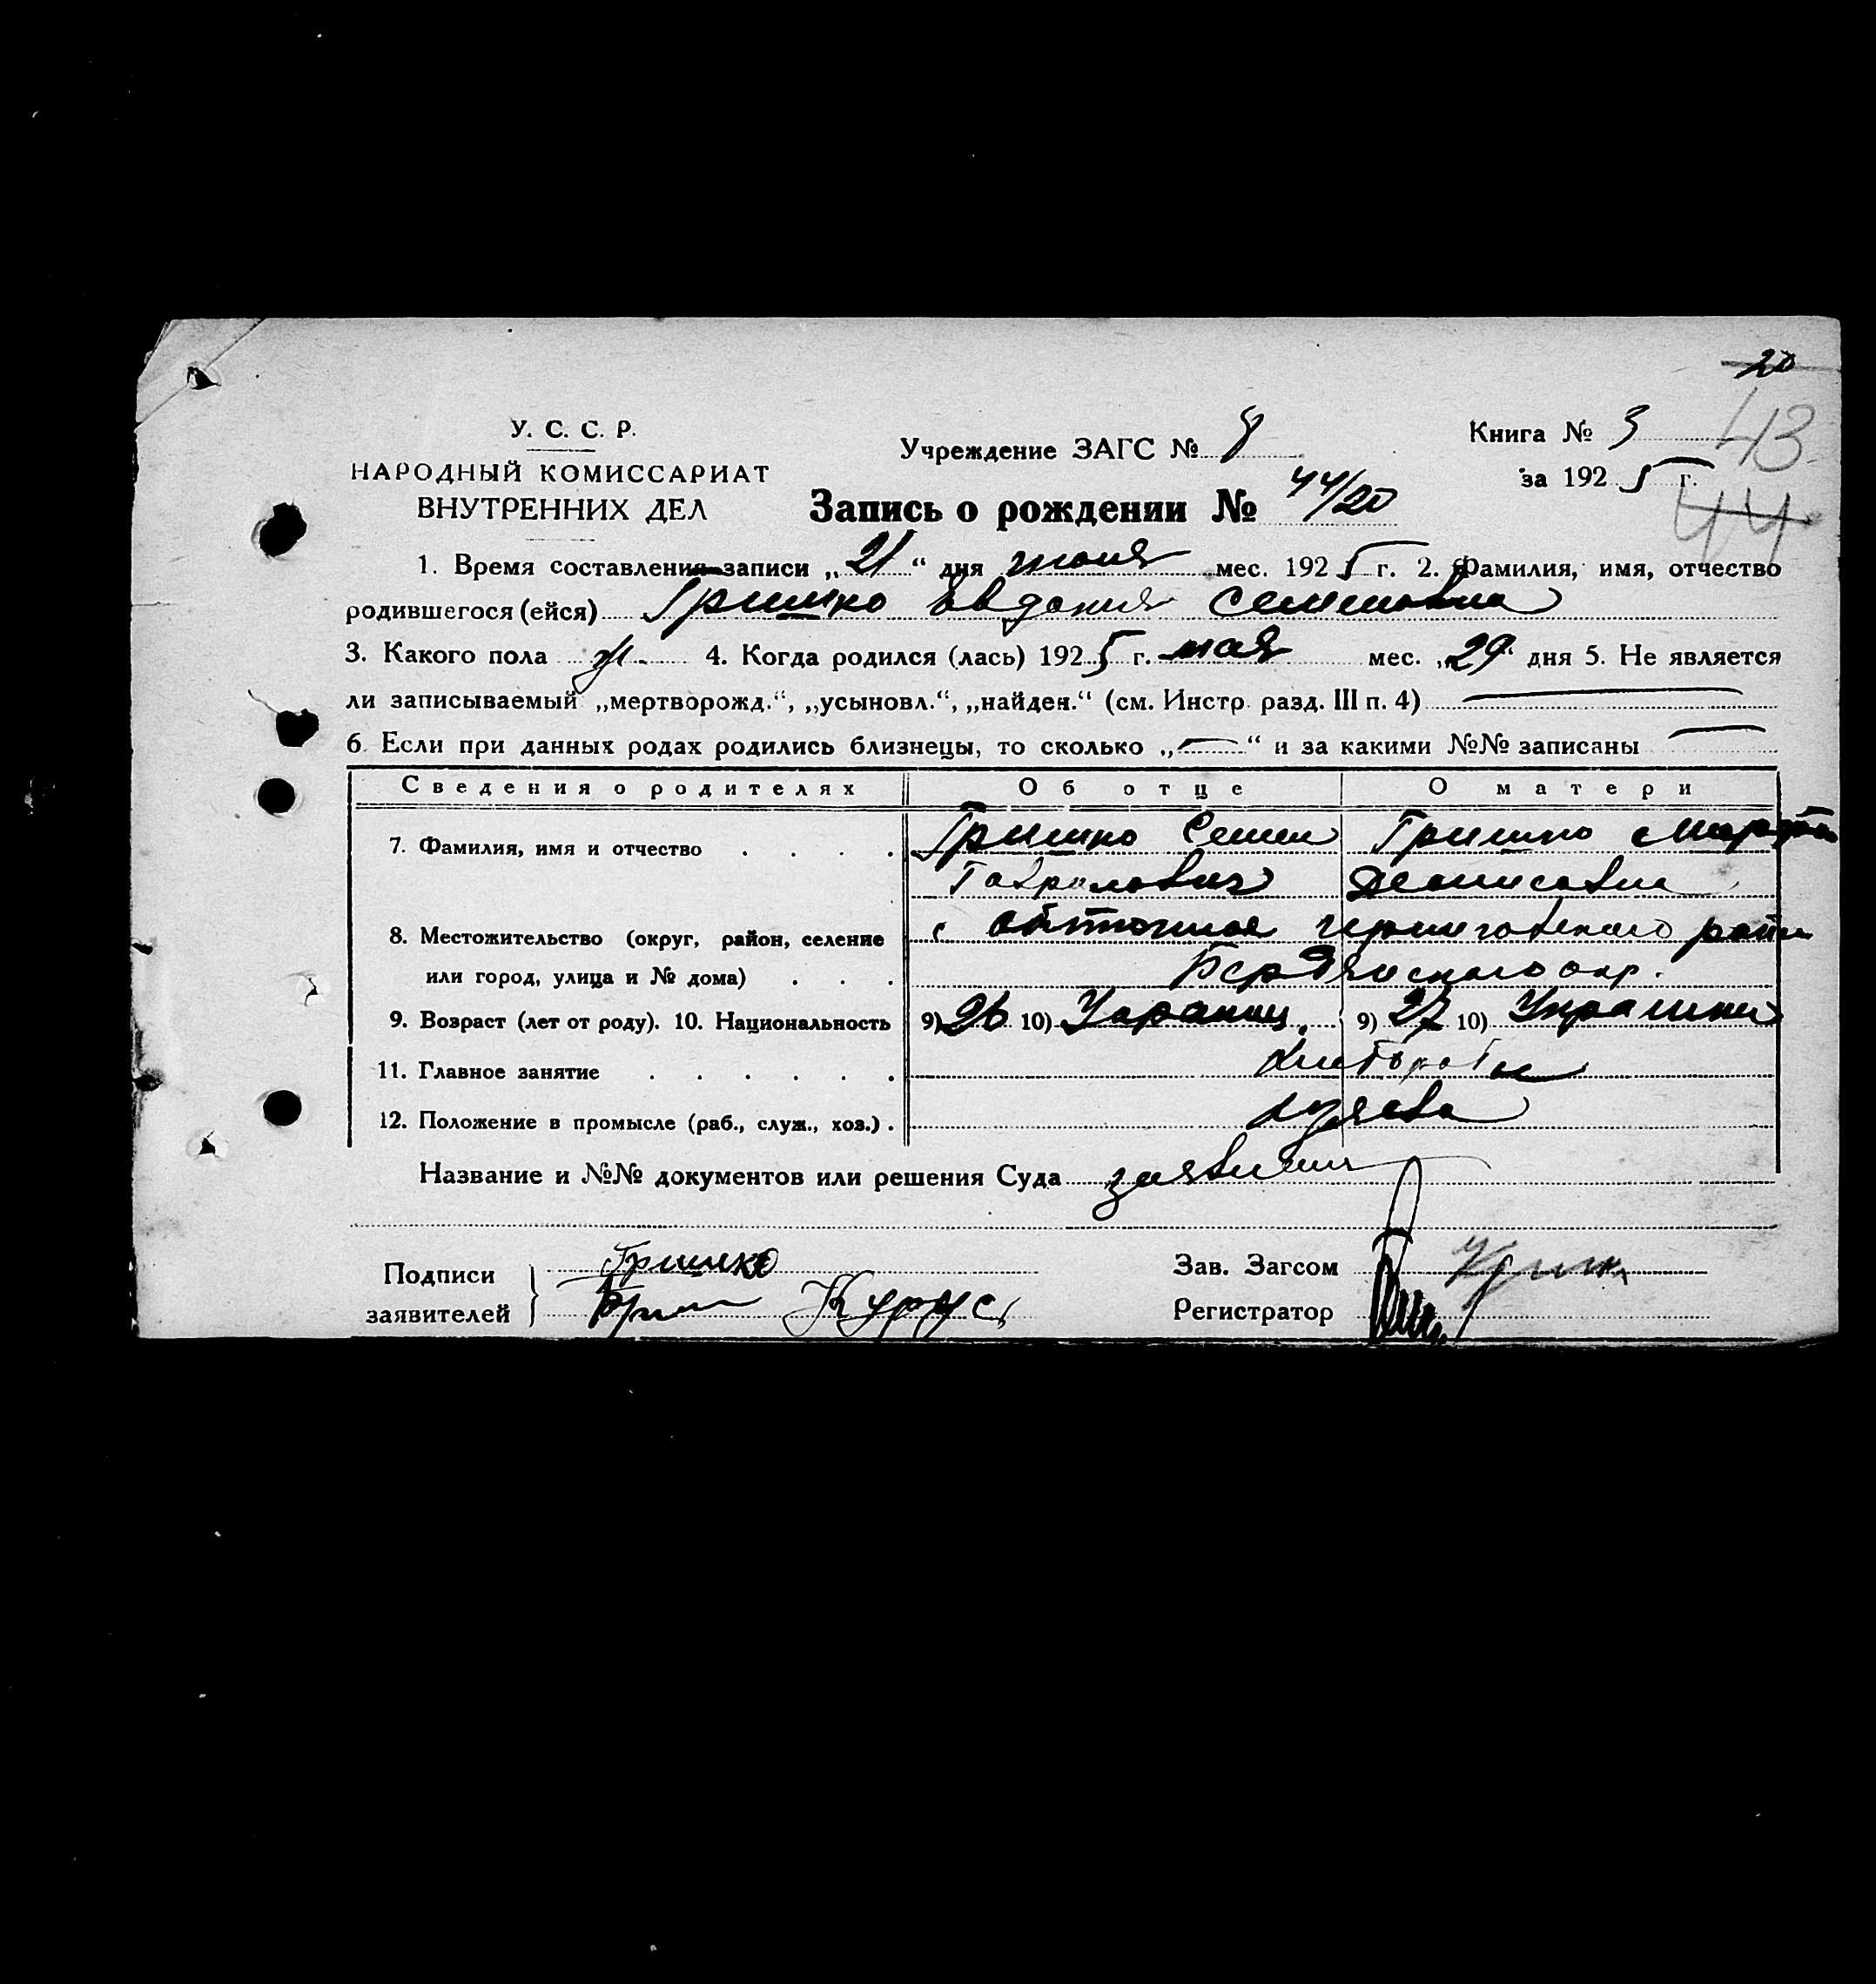 20
У. С. С. Р.
НАРОДНЫЙ КОМИССАРИАТ
ВНУТРЕННИХ ДЕЛ
Учреждение ЗАГС № 8
Книга № 3
43
за 1925 г.
44
Запись о рождении № 44/20
1. Время составления записи „21“ дня июня мес. 1925 г. 2. Фамилия, имя, отчество
родившегося (ейся) Гришко Евдокия Семеновна
3. Какого пола ж. 4. Когда родился (лась) 1925 г. мая мес. „29“ дня 5. Не является
ли записываемый „мертворожд.“, „усыновл.“, „найден.“ (см. Инстр. разд. III п. 4) —
6. Если при данных родах родились близнецы, то сколько „—“ и за какими №№ записаны —
Сведения о родителях Об отце О матери
7. Фамилия, имя и отчество . . . . Гришко Семен Гришко Марфа
Гаврилович Денисовна
8. Местожительство (округ, район, селение с Обиточное Черниговского район
или город, улица и № дома) . . . Бердянского окр.
9. Возраст (лет от роду). 10. Национальность 9) 26 10) Украинц. 9) 27 10) Украинки
11. Главное занятие . . . . . . хлебороб
12. Положение в промысле (раб., служ., хоз.) . хозяева
Название и №№ документов или решения Суда
Подписи
заявителей
Гришко
Зав. Загсом
Регистратор